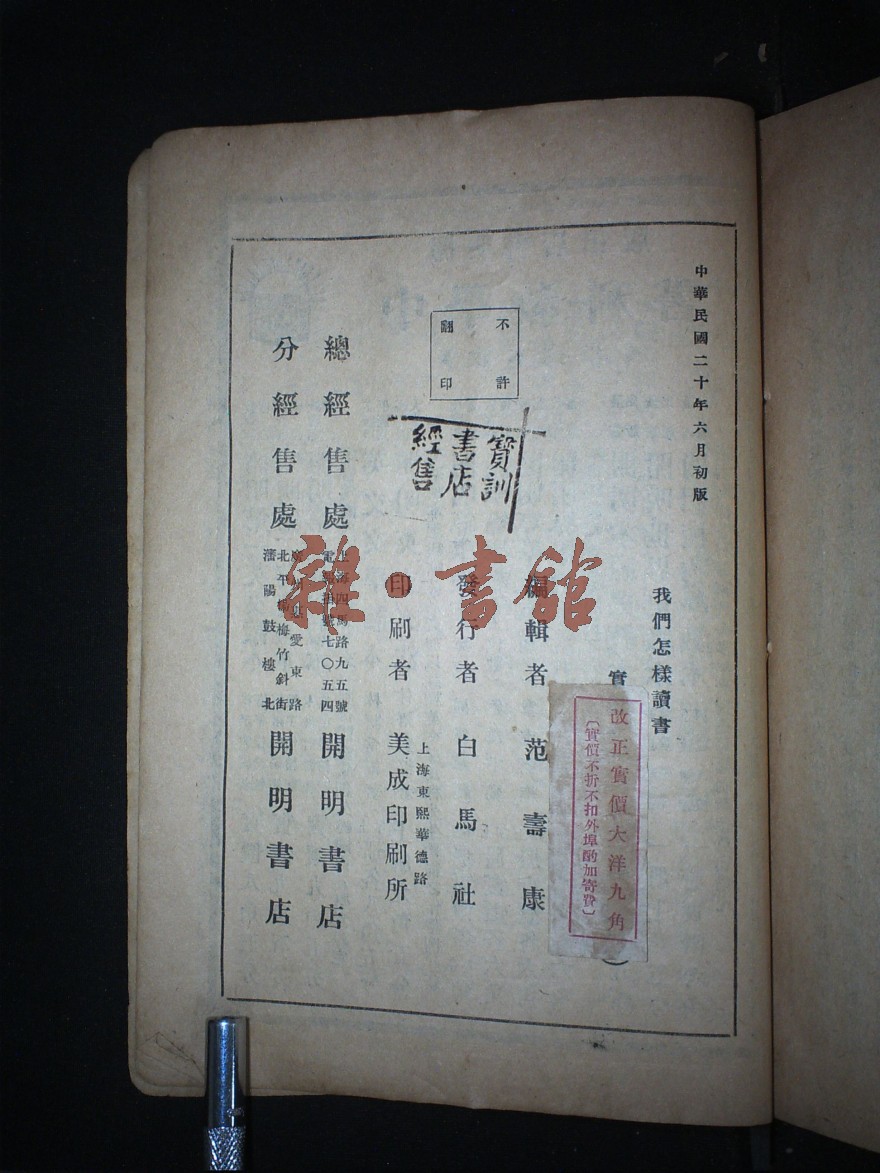 中華民國二十年六月初版
我們怎樣讀書
實
改正實價大洋九角
〔實價不折不扣外埠酌加寄費〕
編輯者 范壽康
不許
翻印
寶訓
書店
經售
發行者 白馬社
上海東熙華德路
印刷者 美成印刷所
總經售處 上海四馬路九五號 七〇五四 開明書店
分經售處 愛東路 北平楊梅竹斜街 瀋陽鼓樓北 開明書店
雜·書館